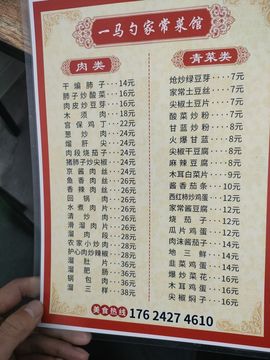 一马勺家常菜馆
肉 类
干煸肺子 14元
肺子炒酸菜 16元
肉皮炒豆芽 16元
木须肉 18元
宫保鸡丁 22元
葱炒肉 24元
熘肝尖 24元
肉段烧茄子 24元
猪肺炒尖椒 24元
京酱肉丝 26元
鱼香肉丝 26元
香辣肉丝 26元
回锅肉 26元
水煮肉片 26元
清炒肉 26元
滑溜肉片 26元
溜肉段 28元
农家小炒肉 28元
护心肉炒辣椒 28元
溜肚片 28元
溜肥肠 36元
锅包肉 36元
溜三样 38元
青菜类
炝炒绿豆芽 7元
家常土豆丝 7元
尖椒土豆片 7元
酸菜炒粉 7元
甘蓝炒粉 8元
火爆甘蓝 8元
尖椒干豆腐 8元
麻辣豆腐 8元
木耳白菜片 9元
酱香茄条 10元
西红柿炒鸡蛋 12元
家常豆腐 12元
烧茄子 12元
瓜片鸡蛋 12元
肉沫酱茄子 14元
地三鲜 14元
韭菜鸡蛋 14元
爆炒菜花 16元
木耳鸡蛋 16元
尖椒焖子 16元
美食热线 176 2427 4610